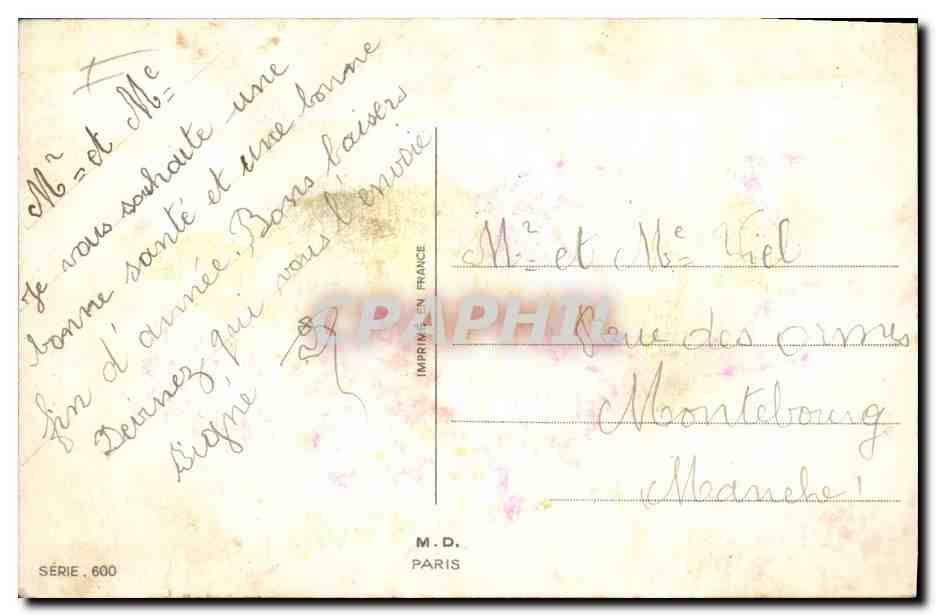 Mr = et Me =
Je vous souhaite une
bonne santé et une bonne
fin d'année. Bons baisers
Devinez qui vous l'envoie
Signé
Mr = et Me = Viel
Rue des ormes
Montebourg
Manche!
IMPRIMÉ EN FRANCE
CPAPHIL
M.D.
PARIS
SÉRIE . 600